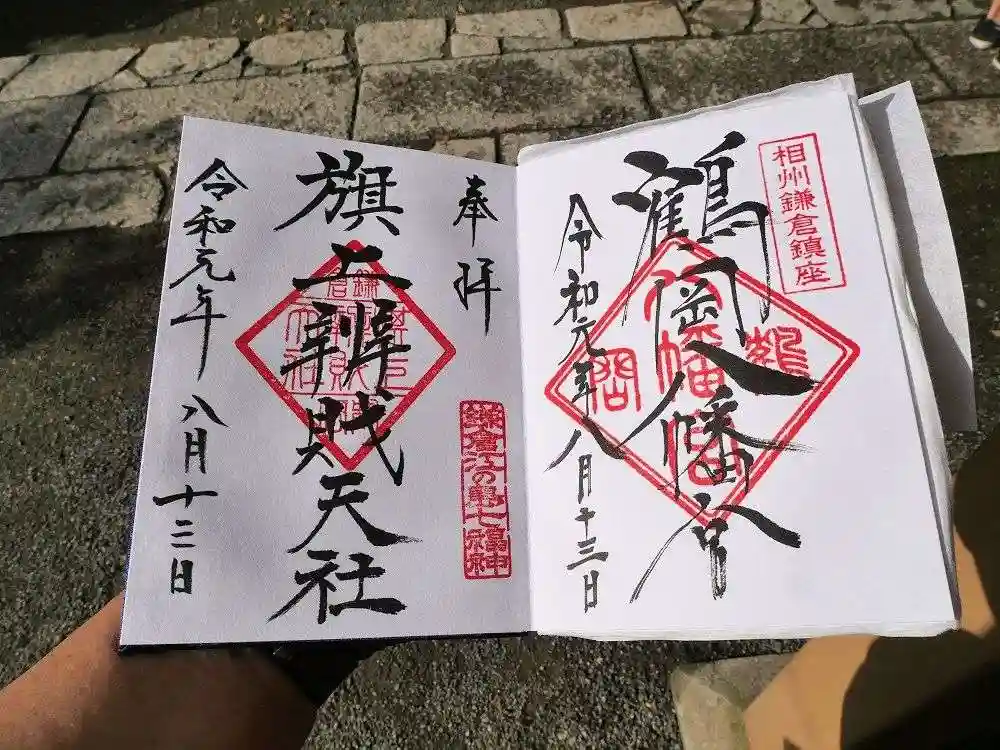 相州鎌倉鎮座
鶴岡八幡宮
令和元年八月十三日
奉拝
鎌倉江の島七福神
旗上辨財天社
令和元年八月十二日